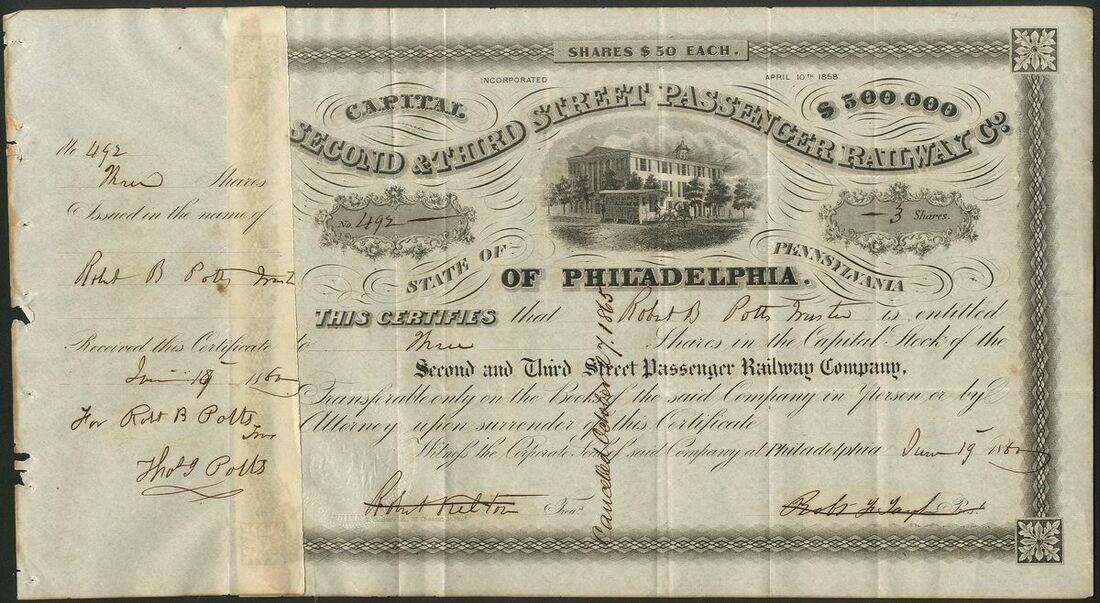 SHARES $50 EACH.
INCORPORATED APRIL 10TH 1858
CAPITAL $500.000
SECOND & THIRD STREET PASSENGER RAILWAY Co.
No. 492
3 Shares.
STATE OF PENNSYLVANIA
OF PHILADELPHIA.
THIS CERTIFIES that Robt B Potts Trustee is entitled
to Three Shares in the Capital Stock of the
Second and Third Street Passenger Railway Company,
Transferable only on the Books of the said Company in Person or by
Attorney upon surrender of this Certificate
Witness the Corporate Seal of said Company at Philadelphia June 19 1860
Treas. Pres.
Cancelled October 27. 1865
No 492
Three Shares
Issued in the name of
Robt B Potts Trustee
Received this Certificate
June 19 1860
For Robt B Potts
Thos J Potts